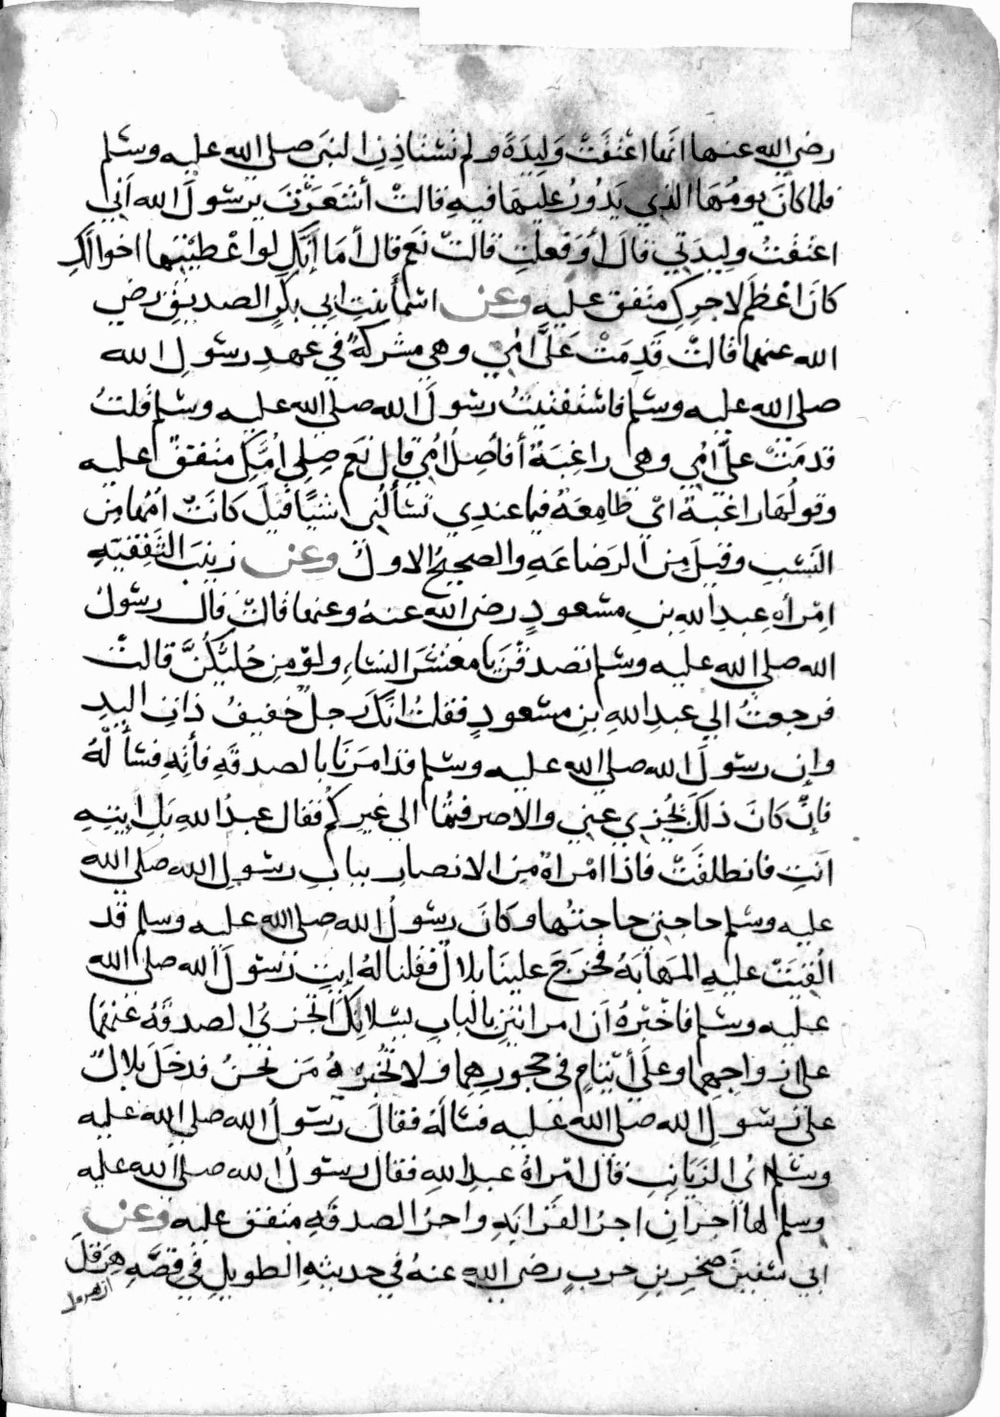 رضي الله عنها انها اعْتَقَتْ وَلِيدَةً ولم تَسْتَاذِنِ النبيَ صلى الله عليه وسلم
فلما كانَ يومُهَا الذي يَدُورُ عليهَا فيهِ قالتْ أشَعَرْتَ يرسُولَ الله أني
اعْتقتُ وليدَتي قالَ أوَفعلتِ قالتْ نَعَم قال أمَا إنَّكِ لوْ اعْطيْتِها اخوالَكِ
كانَ اعْظَمَ لاجرِكِ متفق عليه وعن اسْمأبنتِ ابي بكرٍ الصديقِ رضي
الله عنهما قالتْ قَدِمَتْ عَلَىَّ امي وهي مشركةٌ في عهدِ رسُولِ الله
صلى الله عليه وسلم فاسْتفتيتُ رسُولَ الله صلى الله عليه وسلم قلتُ
قدمَتْ علىَّ امِي وهي راغبَةٌ أفأصِلُ امي قال نَعَم صِلِى امَّكِ متفقٌ عليه
وقولُهَا راغبة اىْ طامِعَة فيما عندِي تسْألُني شيًا قيلَ كانَتْ امُها مِنَ
النَسَبِ وقيلَ مِنَ الرضاعَةِ والصحيحُ الاول وعن زينبَ الثقفيةِ
امْرأةِ عبدِ اللهِ بنِ مسْعودٍ رضى الله عنهُ وعنها قالتْ قال رسُولُ
الله صلى الله عليه وسلم تصدقْنَ يا معْشَرَ النسَاءِ ولوْ مِن حُليِّكُنَّ قالتْ
فرجعتُ الى عبدِ اللهِ بنِ مسْعودٍ فقلتُ انَّكَ رجلٌ خَفيفُ ذاتِ اليدِ
وإن رسُولَ الله صلى الله عليه وسلم قد امرَنَا بالصدقةِ فأتِهِ فسْألْهُ
فإنْ كانَ ذلكَ يُجْزِي عَني والا صرفتُها الى غيرِكم فقال عبدُ اللهِ بَلِ ايتيهِ
انتِ فانطلقتْ فاذا امْرأةٌ مِنَ الانصارِ ببابِ رسُولِ الله صلى الله
عليه وسلم حاجتي حاجتُها وكانَ رسُولُ الله صلى الله عليه وسلم قد
الْقيَتْ عليهِ المهَابَةُ فخرَجَ علينَا بلالٌ فقلنا لهُ إيتِ رَسُولَ الله صلى الله
عليه وسلم فأخْبرْهُ أن امراتينِ بالبابِ يسْألانِكَ اتجْزئُ الصدقَةُ عنْهُمَا
على ازواجِهِما وعلى أيْتَامٍ في حجورِهِما ولا تُخْبِرْهُ مَن نحنُ فدخَلَ بلالٌ
على رسُولِ الله صلى الله عليه فسَالَهُ فقالَ رسُولُ الله صلى الله عليه
وسَلم اىُ الزَيَانِبِ قال امْراةُ عبدِ اللهِ فقال رسُولُ الله صلى الله عليه
وسلم لها اجرانِ اجرُ القَرَابَةِ واجرُ الصدقَةِ متفق عليه وعن
ابي سُفينَ صخرِ بنِ حربٍ رضى الله عنهُ في حديثِهِ الطويلِ في قصَّةِ هِرَقلَ